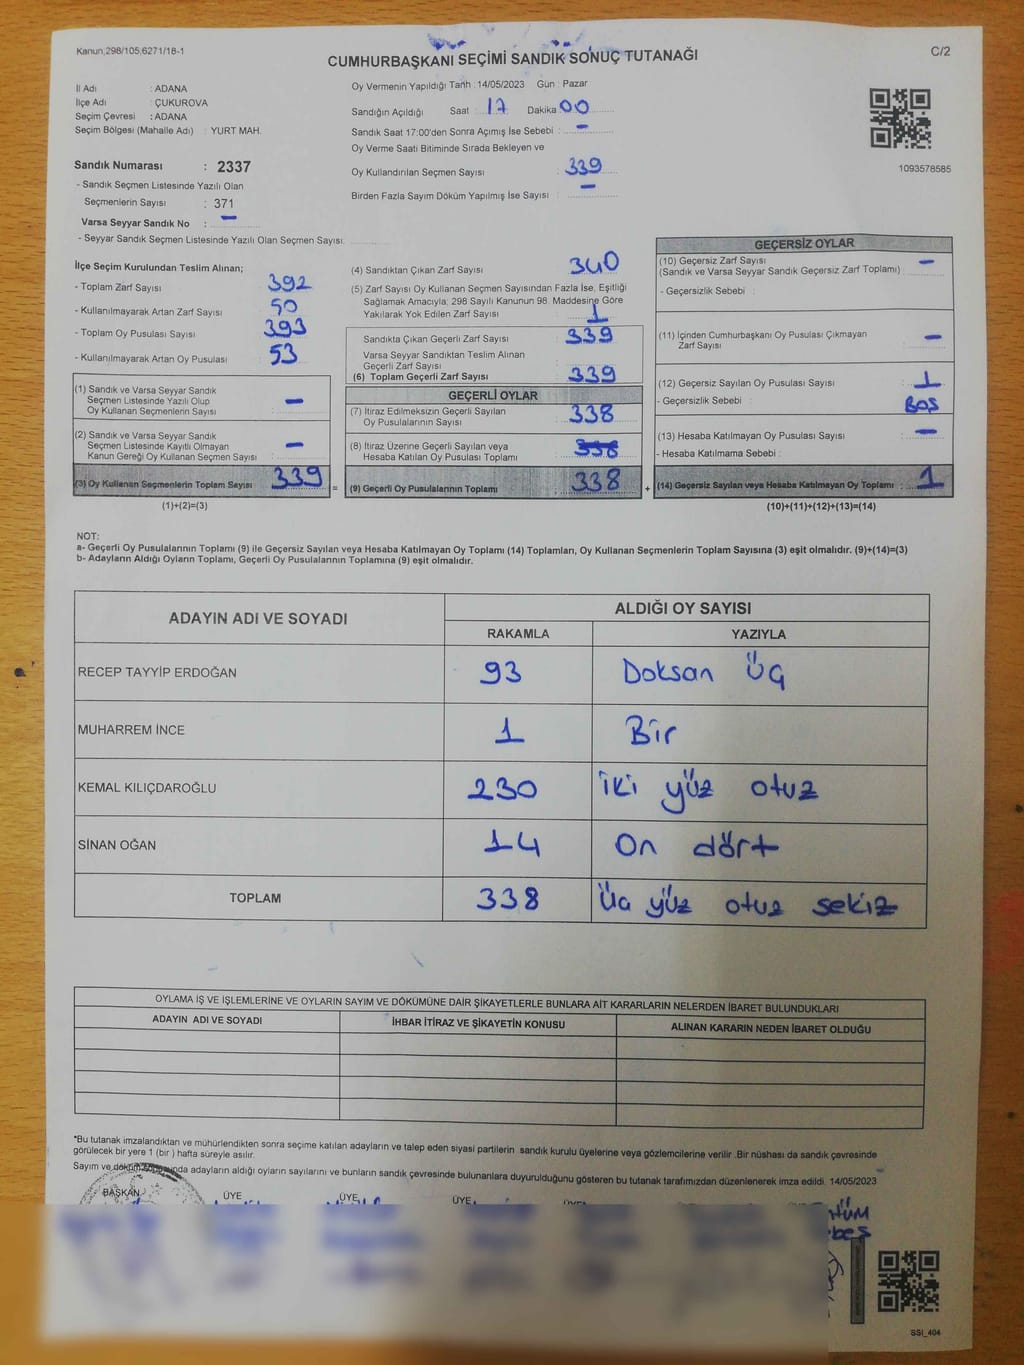 Kanun,298/105,6271/18-1
C/2
CUMHURBAŞKANI SEÇİMİ SANDIK SONUÇ TUTANAĞI
İl Adı : ADANA
İlçe Adı : ÇUKUROVA
Seçim Çevresi : ADANA
Seçim Bölgesi (Mahalle Adı) : YURT MAH.
Sandık Numarası : 2337
- Sandık Seçmen Listesinde Yazılı Olan
Seçmenlerin Sayısı : 371
Varsa Seyyar Sandık No : -
- Seyyar Sandık Seçmen Listesinde Yazılı Olan Seçmen Sayısı:
Oy Vermenin Yapıldığı Tarih : 14/05/2023 Gün : Pazar
Sandığın Açıldığı Saat : 17 Dakika 00
Sandık Saat 17:00'den Sonra Açımış İse Sebebi : -
Oy Verme Saati Bitiminde Sırada Bekleyen ve
Oy Kullandırılan Seçmen Sayısı : 339
Birden Fazla Sayım Döküm Yapılmış İse Sayısı : -
1093578585
İlçe Seçim Kurulundan Teslim Alınan;
- Toplam Zarf Sayısı 392
- Kullanılmayarak Artan Zarf Sayısı 50
- Toplam Oy Pusulası Sayısı 393
- Kullanılmayarak Artan Oy Pusulası 53
(1) Sandık ve Varsa Seyyar Sandık
Seçmen Listesinde Yazılı Olup
Oy Kullanan Seçmenlerin Sayısı : -
(2) Sandık ve Varsa Seyyar Sandık
Seçmen Listesinde Kayıtlı Olmayan
Kanun Gereği Oy Kullanan Seçmen Sayısı : -
(3) Oy Kullanan Seçmenlerin Toplam Sayısı 339
(1)+(2)=(3)
=
(4) Sandıktan Çıkan Zarf Sayısı 340
(5) Zarf Sayısı Oy Kullanan Seçmen Sayısından Fazla İse, Eşitliği
Sağlamak Amacıyla; 298 Sayılı Kanunun 98. Maddesine Göre
Yakılarak Yok Edilen Zarf Sayısı : 1
Sandıkta Çıkan Geçerli Zarf Sayısı : 339
Varsa Seyyar Sandıktan Teslim Alınan
Geçerli Zarf Sayısı :
(6) Toplam Geçerli Zarf Sayısı 339
GEÇERLİ OYLAR
(7) İtiraz Edilmeksizin Geçerli Sayılan
Oy Pusulalarının Sayısı : 338
(8) İtiraz Üzerine Geçerli Sayılan veya
Hesaba Katılan Oy Pusulası Toplamı : 338
(9) Geçerli Oy Pusulalarının Toplamı 338
+
GEÇERSİZ OYLAR
(10) Geçersiz Zarf Sayısı
(Sandık ve Varsa Seyyar Sandık Geçersiz Zarf Toplamı) -
- Geçersizlik Sebebi :
(11) İçinden Cumhurbaşkanı Oy Pusulası Çıkmayan
Zarf Sayısı -
(12) Geçersiz Sayılan Oy Pusulası Sayısı : 1
- Geçersizlik Sebebi : BOŞ
(13) Hesaba Katılmayan Oy Pusulası Sayısı : -
- Hesaba Katılmama Sebebi :
(14) Geçersiz Sayılan veya Hesaba Katılmayan Oy Toplamı : 1
(10)+(11)+(12)+(13)=(14)
NOT:
a- Geçerli Oy Pusulalarının Toplamı (9) ile Geçersiz Sayılan veya Hesaba Katılmayan Oy Toplamı (14) Toplamları, Oy Kullanan Seçmenlerin Toplam Sayısına (3) eşit olmalıdır. (9)+(14)=(3)
b- Adayların Aldığı Oyların Toplamı, Geçerli Oy Pusulalarının Toplamına (9) eşit olmalıdır.
ADAYIN ADI VE SOYADI
ALDIĞI OY SAYISI
RAKAMLA YAZIYLA
RECEP TAYYİP ERDOĞAN 93 Doksan Üç
MUHARREM İNCE 1 Bir
KEMAL KILIÇDAROĞLU 230 iki yüz otuz
SİNAN OĞAN 14 On dört
TOPLAM 338 Üç yüz otuz sekiz
OYLAMA İŞ VE İŞLEMLERİNE VE OYLARIN SAYIM VE DÖKÜMÜNE DAİR ŞİKAYETLERLE BUNLARA AİT KARARLARIN NELERDEN İBARET BULUNDUKLARI
ADAYIN ADI VE SOYADI İHBAR İTİRAZ VE ŞİKAYETİN KONUSU ALINAN KARARIN NEDEN İBARET OLDUĞU
*Bu tutanak imzalandıktan ve mühürlendikten sonra seçime katılan adayların ve talep eden siyasi partilerin sandık kurulu üyelerine veya gözlemcilerine verilir .Bir nüshası da sandık çevresinde
görülecek bir yere 1 (bir ) hafta süreyle asılır.
Sayım ve adayların aldığı oyların sayılarını ve bunların sandık çevresinde bulunanlara duyurulduğunu gösteren bu tutanak tarafımızdan düzenlenerek imza edildi. 14/05/2023
BAŞKAN ÜYE ÜYE ÜYE
SSI_404